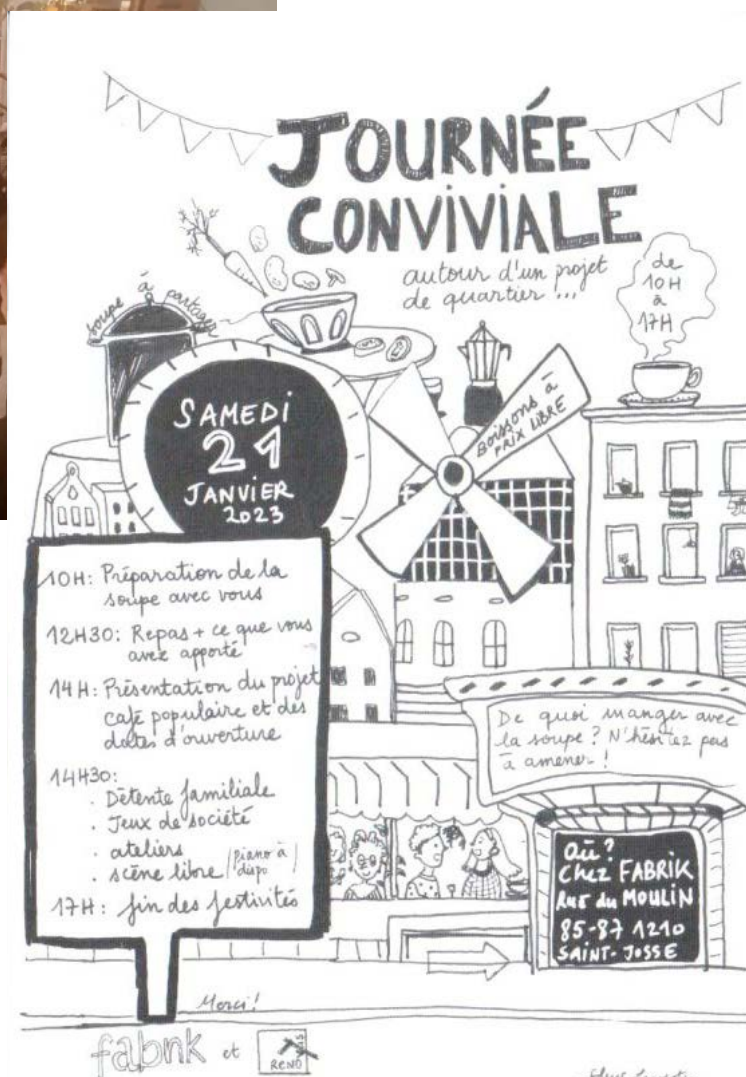 JOURNÉE
CONVIVIALE
autour d'un projet
de quartier ...
de
10H
à
17H
soupe à partager
SAMEDI
21
JANVIER
2023
BOISSONS à
PRIX LIBRE
10H: Préparation de la
soupe avec vous
12H30: Repas + ce que vous
avez apporté
14H: Présentation du projet
café populaire et des
dates d'ouverture
14H30:
. Détente familiale
. Jeux de société
. ateliers
. scène libre (piano à
dispo
17H: fin des festivités
De quoi manger avec
la soupe? N'hésitez pas
à amener!
Où?
Chez FABRIK
RUE du MOULIN
85-87 1210
SAINT-JOSSE
Merci!
fabrik et
RENO